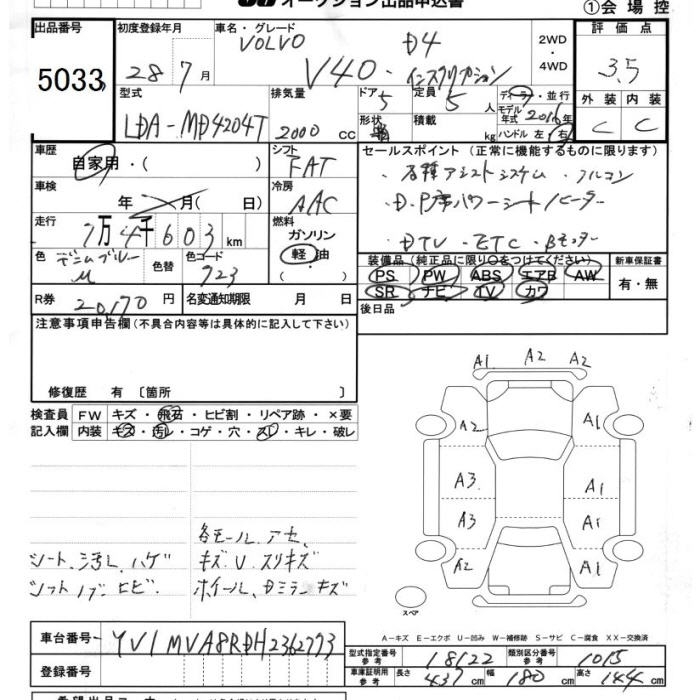 オークション出品申込書
①会場控
出品番号
5033
初度登録年月
28年7月
車名・グレード
VOLVO
V40・
D4
インスクリプション
2WD
・
4WD
評価点
3.5
外装 内装
C C
型式
LDA-MD4204T
排気量
2000 cc
ドア
5
形状
定員
5人
積載
kg
ディーラー・並行
モデル年式 2016年
ハンドル 左・右
車歴
自家用・( )
シフト
FAT
車検
年 月( 日)
冷房
AAC
走行
7万4千603km
燃料
ガソリン
軽油
( )
色
デニムブルーM
色替
色コード
723
R券 20,170円
名変通知期限 月 日
セールスポイント(正常に機能するものに限ります)
・各種アシストシステム・アルコン
・D.P席パワーシートヒーター
・DTV・ETC・Bモニター
装備品(純正品に限り○をつけてください)
PS PW ABS エアB AW
SR ナビ TV カワ
新車保証書
有・無
後日品
注意事項申告欄(不具合内容等は具体的に記入して下さい)
修復歴 有〔箇所 〕
検査員記入欄
FW キズ・飛石・ヒビ割・リペア跡・×要
内装 キズ・汚レ・コゲ・穴・スレ・キレ・破レ
シート汚レ ハゲ
シフトノブヒビ
各モール アセ
キズ U スリキズ
ホイール、Dミラーキズ
A1 A2 A2
A2 A1
A3 A1
A3 A1
A2 A1
スペア
A-キズ E-エクボ U-凹み W-補修跡 S-サビ C-腐食 XX-交換済
車台番号 YV1MVA8RDH2362773
登録番号
型式指定番号 参考 18122
類別区分番号 参考 1015
車庫証明用 参考 長さ 437cm 幅 180cm 高さ 144cm